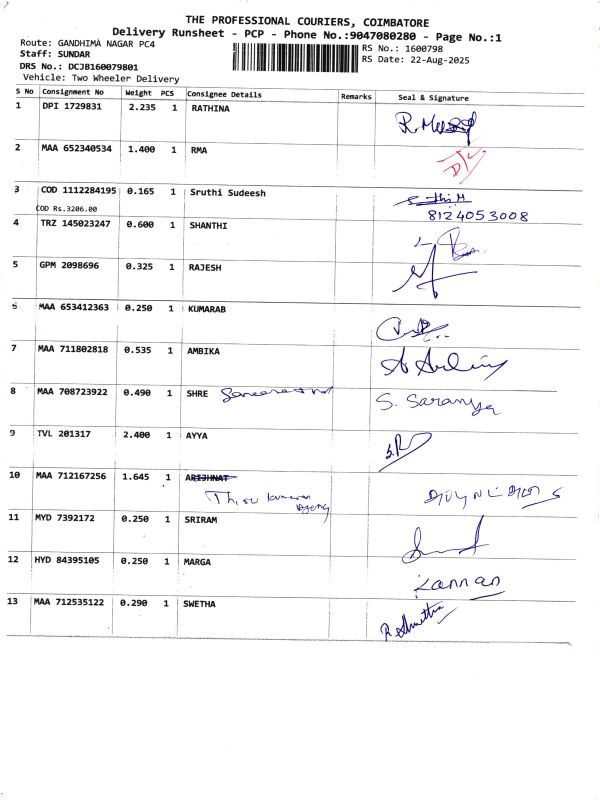 THE PROFESSIONAL COURIERS, COIMBATORE
Delivery Runsheet - PCP - Phone No.:9047080280 - Page No.:1
Route: GANDHIMA NAGAR PC4
RS No.: 1600798
Staff: SUNDAR
RS Date: 22-Aug-2025
DRS No.: DCJB160079801
Vehicle: Two Wheeler Delivery
S No Consignment No Weight PCS Consignee Details Remarks Seal & Signature
1 DPI 1729831 2.235 1 RATHINA
2 MAA 652340534 1.400 1 RMA
3 COD 1112284195 0.165 1 Sruthi Sudeesh
COD Rs.3206.00 8124053008
4 TRZ 145023247 0.600 1 SHANTHI
5 GPM 2098696 0.325 1 RAJESH
6 MAA 653412363 0.250 1 KUMARAB
7 MAA 711802818 0.535 1 AMBIKA
8 MAA 708723922 0.490 1 SHRE S. Saranya
9 TVL 201317 2.400 1 AYYA
10 MAA 712167256 1.645 1 ARIJHNAT
11 MYD 7392172 0.250 1 SRIRAM
12 HYD 84395105 0.250 1 MARGA
Kannan
13 MAA 712535122 0.290 1 SWETHA